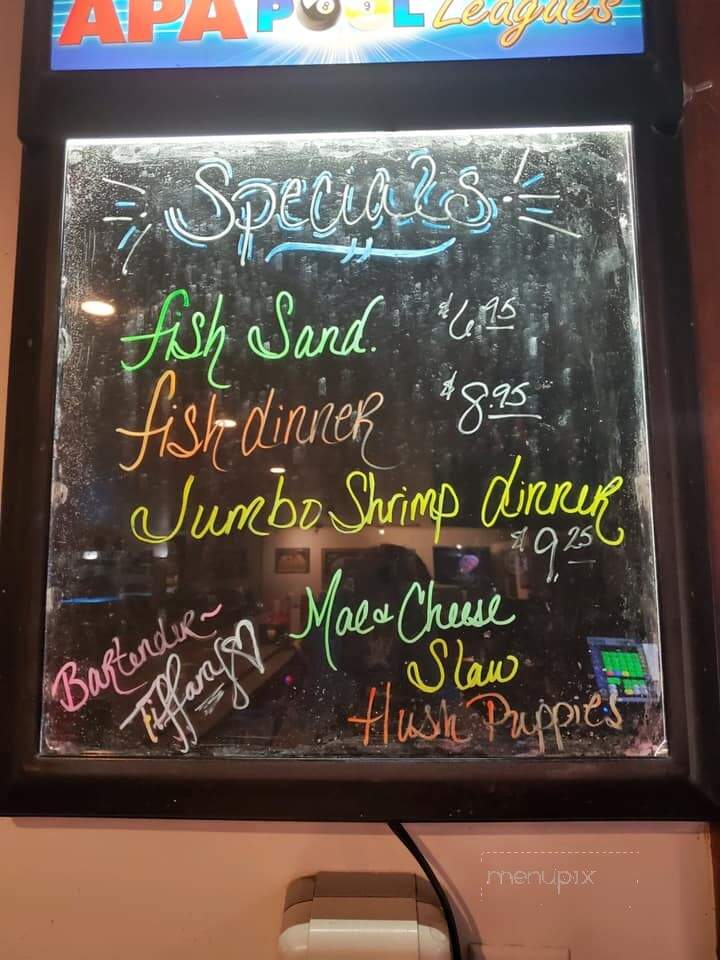 APA POOL Leagues
Specials
fish Sand. $6.95
fish dinner $8.95
Jumbo Shrimp dinner
$9.25
Mac & Cheese
Slaw
Hush Puppies
Bartender~
Tiffany
menupix